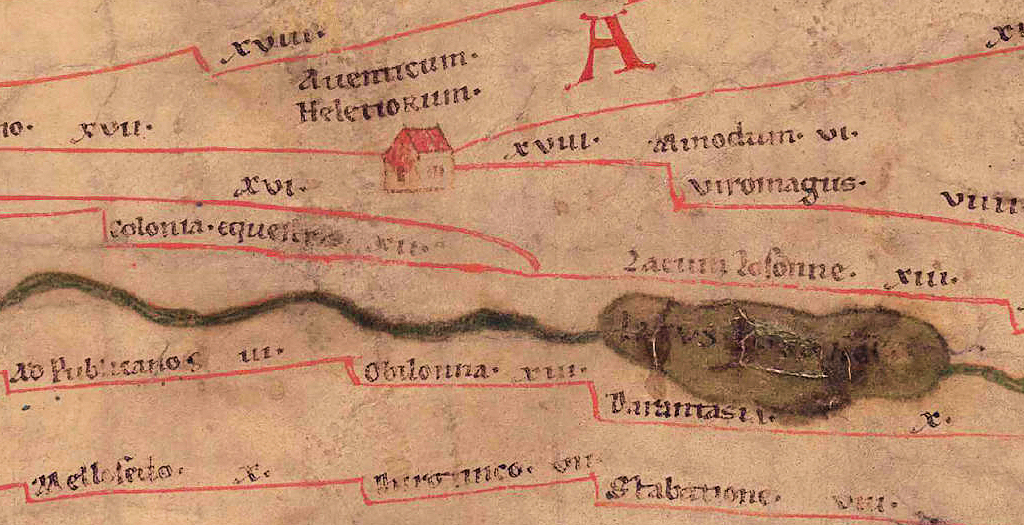 xviii.
A
Aventicum.
Heletiorum.
xvii.
xviii.
Minodum. vi.
xvi.
viromagus.
viiii
Colonia. equestris. xii.
Lacum losonne. xiii.
Ad Publicanos iii.
Obilonna. xiii.
Darantasia.
x.
x.
vii.
Stabatione. viii.